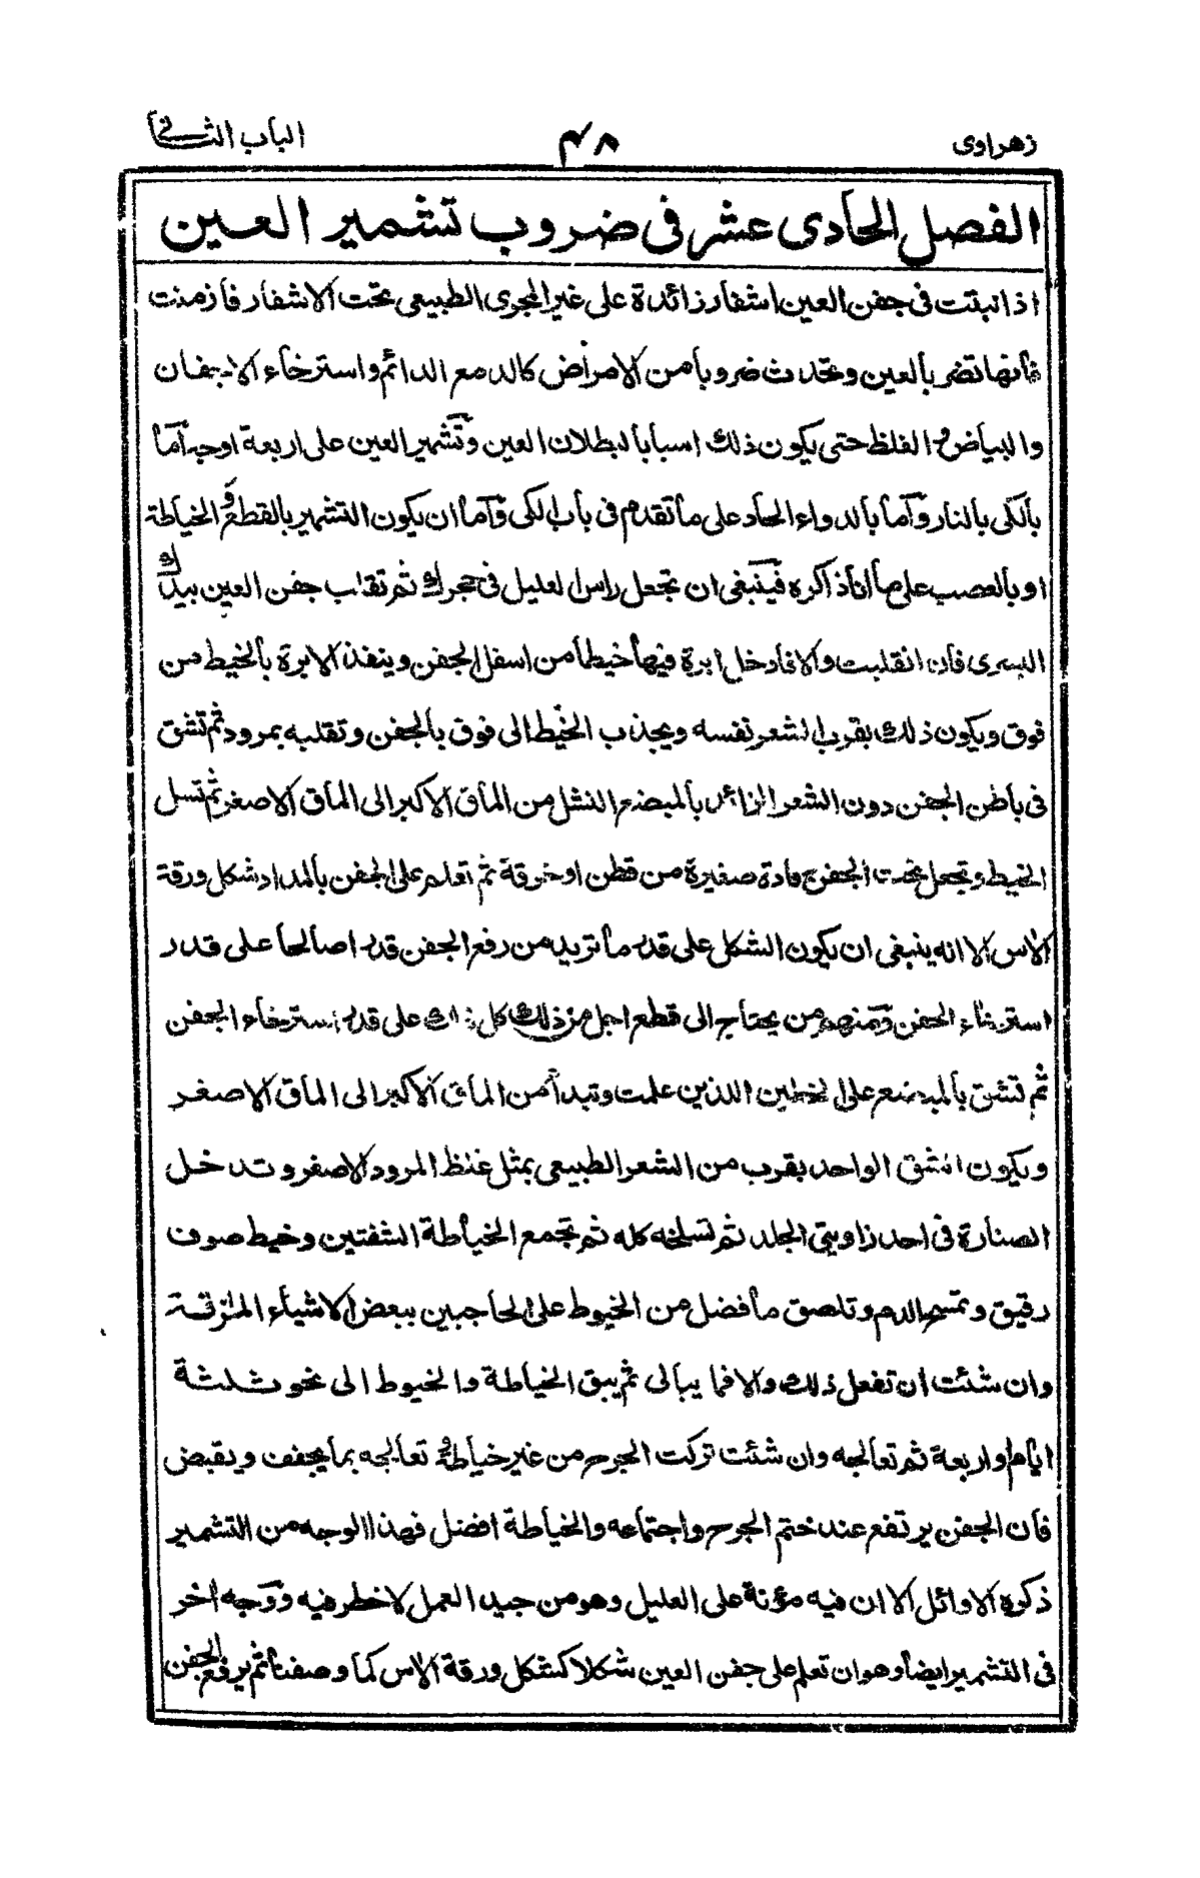 زهراوی ۴۸ الباب الثانی
الفصل الحادی عشر فی ضروب تشمیر العین
اذا نبتت فی جفن العین اشفار زائدة علی غیر المجری الطبیعی تحت الاشفار فازمنت
فانها تضر بالعین وتحدث ضروبا من الامراض کالدمع الدائم واسترخاء الاجفان
والبیاض و الغلظ حتی یکون ذلک اسبابا لبطلان العین وتشمیر العین علی اربعة اوجه اما
بالکی بالنار واما بالدواء الحاد علی ما تقدم فی باب الکی واما ان یکون التشمیر بالقطع و الخیاطة
او بالعصب علی ما انا ذاکره فینبغی ان تجعل راس العلیل فی حجرک ثم تقلب جفن العین بیدک
الیسری فان انقلبت والا فادخل ابرة فیها خیطا من اسفل الجفن وینفذ الابرة بالخیط من
فوق ویکون ذلک بقرب الشعر نفسه ویجذب الخیط الی فوق بالجفن وتقلبه بمرود ثم تشق
فی باطن الجفن دون الشعر الزائد بالمبضع النشل من المأق الاکبر الی المأق الاصغر ثم تسل
الخیط وتجعل تحت الجفن رفادة صغیرة من قطن او خرقة ثم تعلم علی الجفن بالمداد شکل ورقة
الآس الا انه ینبغی ان یکون الشکل علی قدر ما ترید من رفع الجفن قدرا صالحا علی قدر
استرخاء الجفن ومنهم من یحتاج الی قطع اجل من ذلک کل ذلک علی قدر استرخاء الجفن
ثم تشق بالمبضع علی الخطین اللذین علمت وتبدأ من المأق الاکبر الی المأق الاصغر
ویکون الشق الواحد بقرب من الشعر الطبیعی بمثل غلظ المرود الاصغر وتدخل
الصنارة فی احد زاویتی الجلد ثم تسلخه کله ثم تجمع الخیاطة الشفتین وخیط صوف
رقیق وتمسح الدم وتلصق ما فضل من الخیوط علی الحاجبین ببعض الاشیاء الملزقة
وان شئت ان تفعل ذلک والا فما یبالی ثم یبق الخیاطة والخیوط الی نحو ثلثة
ایام او اربعة ثم تعالجه وان شئت ترکت الجرح من غیر خیاطة و تعالجه بما یجفف ویقبض
فان الجفن یرتفع عند ختم الجرح واجتماعه والخیاطة افضل فهذا الوجه من التشمیر
ذکره الاوائل الا ان فیه مؤنة علی العلیل وهو من جید العمل لا خطر فیه ووجه اخر
فی التشمیر ایضا وهو ان تعلم علی جفن العین شکلا کشکل ورقة الآس کما وصفنا ثم یرفع الجفن